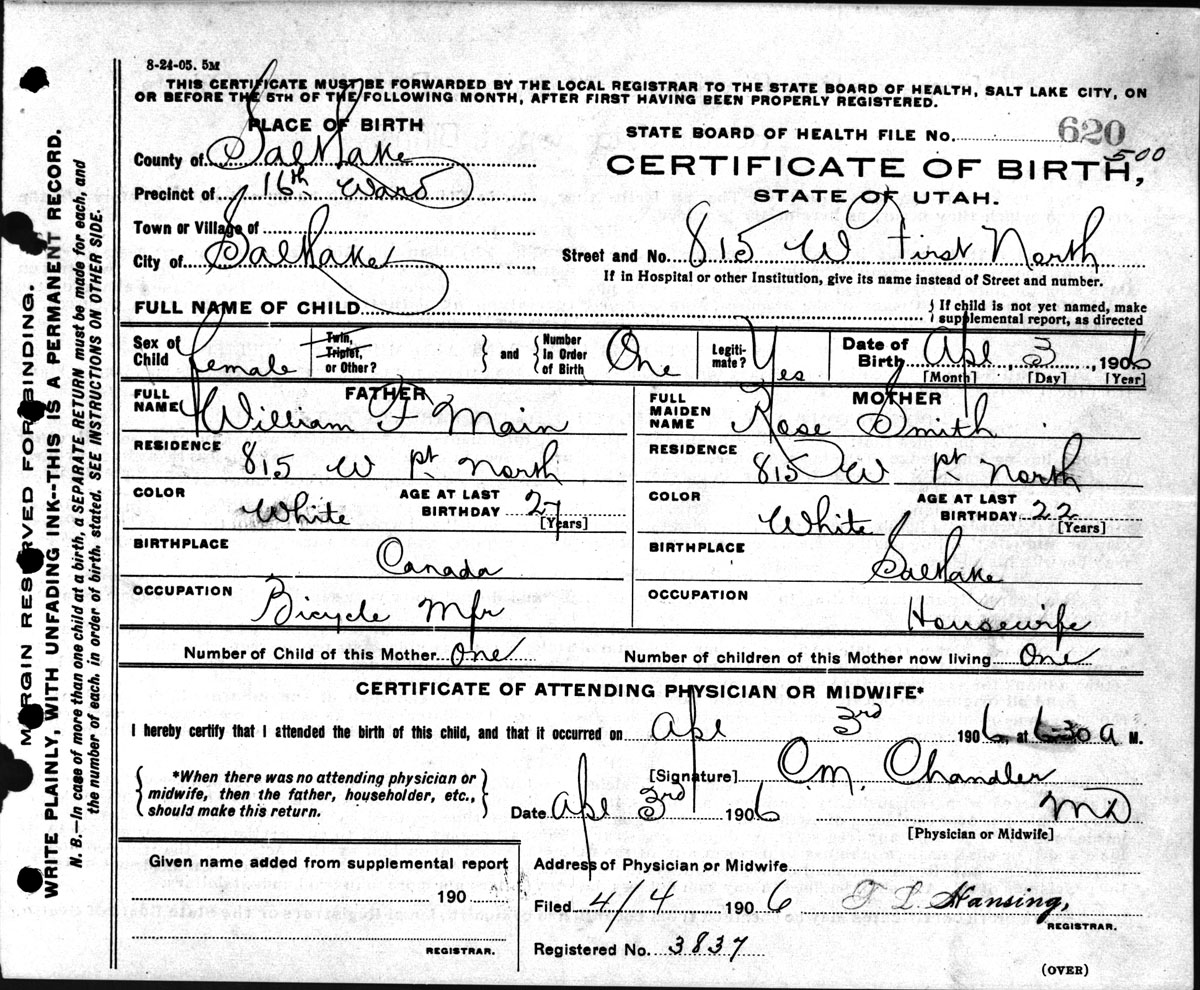 8-24-05. 5M
THIS CERTIFICATE MUST BE FORWARDED BY THE LOCAL REGISTRAR TO THE STATE BOARD OF HEALTH, SALT LAKE CITY, ON
OR BEFORE THE 5TH OF THE FOLLOWING MONTH, AFTER FIRST HAVING BEEN PROPERLY REGISTERED.
PLACE OF BIRTH
County of Salt Lake
Precinct of 16th Ward
Town or Village of
City of Salt Lake
STATE BOARD OF HEALTH FILE No. 620
500
CERTIFICATE OF BIRTH,
STATE OF UTAH.
Street and No. 815 W First North
If in Hospital or other Institution, give its name instead of Street and number.
FULL NAME OF CHILD
{ If child is not yet named, make
supplemental report, as directed
Sex of Child Female
Twin, Triplet, or Other? } and { Number In Order of Birth One
Legitimate? Yes
Date of Birth Apl 3, 1906
[Month] [Day] [Year]
FATHER
FULL NAME William F Main
RESIDENCE 815 W 1st North
COLOR White
AGE AT LAST BIRTHDAY 27
[Years]
BIRTHPLACE Canada
OCCUPATION Bicycle Mfr
MOTHER
FULL MAIDEN NAME Rose Smith
RESIDENCE 815 W 1st North
COLOR White
AGE AT LAST BIRTHDAY 22
[Years]
BIRTHPLACE Salt Lake
OCCUPATION Housewife
Number of Child of this Mother One
Number of children of this Mother now living One
CERTIFICATE OF ATTENDING PHYSICIAN OR MIDWIFE*
I hereby certify that I attended the birth of this child, and that it occurred on Apl 3rd 1906, at 6-30 a M.
{ *When there was no attending physician or
midwife, then the father, householder, etc.,
should make this return. }
[Signature] C.M. Chandler
Date Apl 3rd 1906 MD
[Physician or Midwife]
Given name added from supplemental report
190
REGISTRAR.
Address of Physician or Midwife
Filed 4/4 1906 T L Hansing,
REGISTRAR.
Registered No. 3837
(OVER)
MARGIN RESERVED FOR BINDING.
WRITE PLAINLY, WITH UNFADING INK---THIS IS A PERMANENT RECORD.
N. B.—In case of more than one child at a birth, a SEPARATE RETURN must be made for each, and
the number of each, in order of birth, stated. SEE INSTRUCTIONS ON OTHER SIDE.